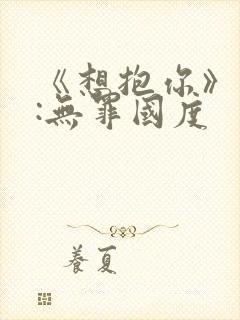 《想抱你》
:無罪國度
養夏